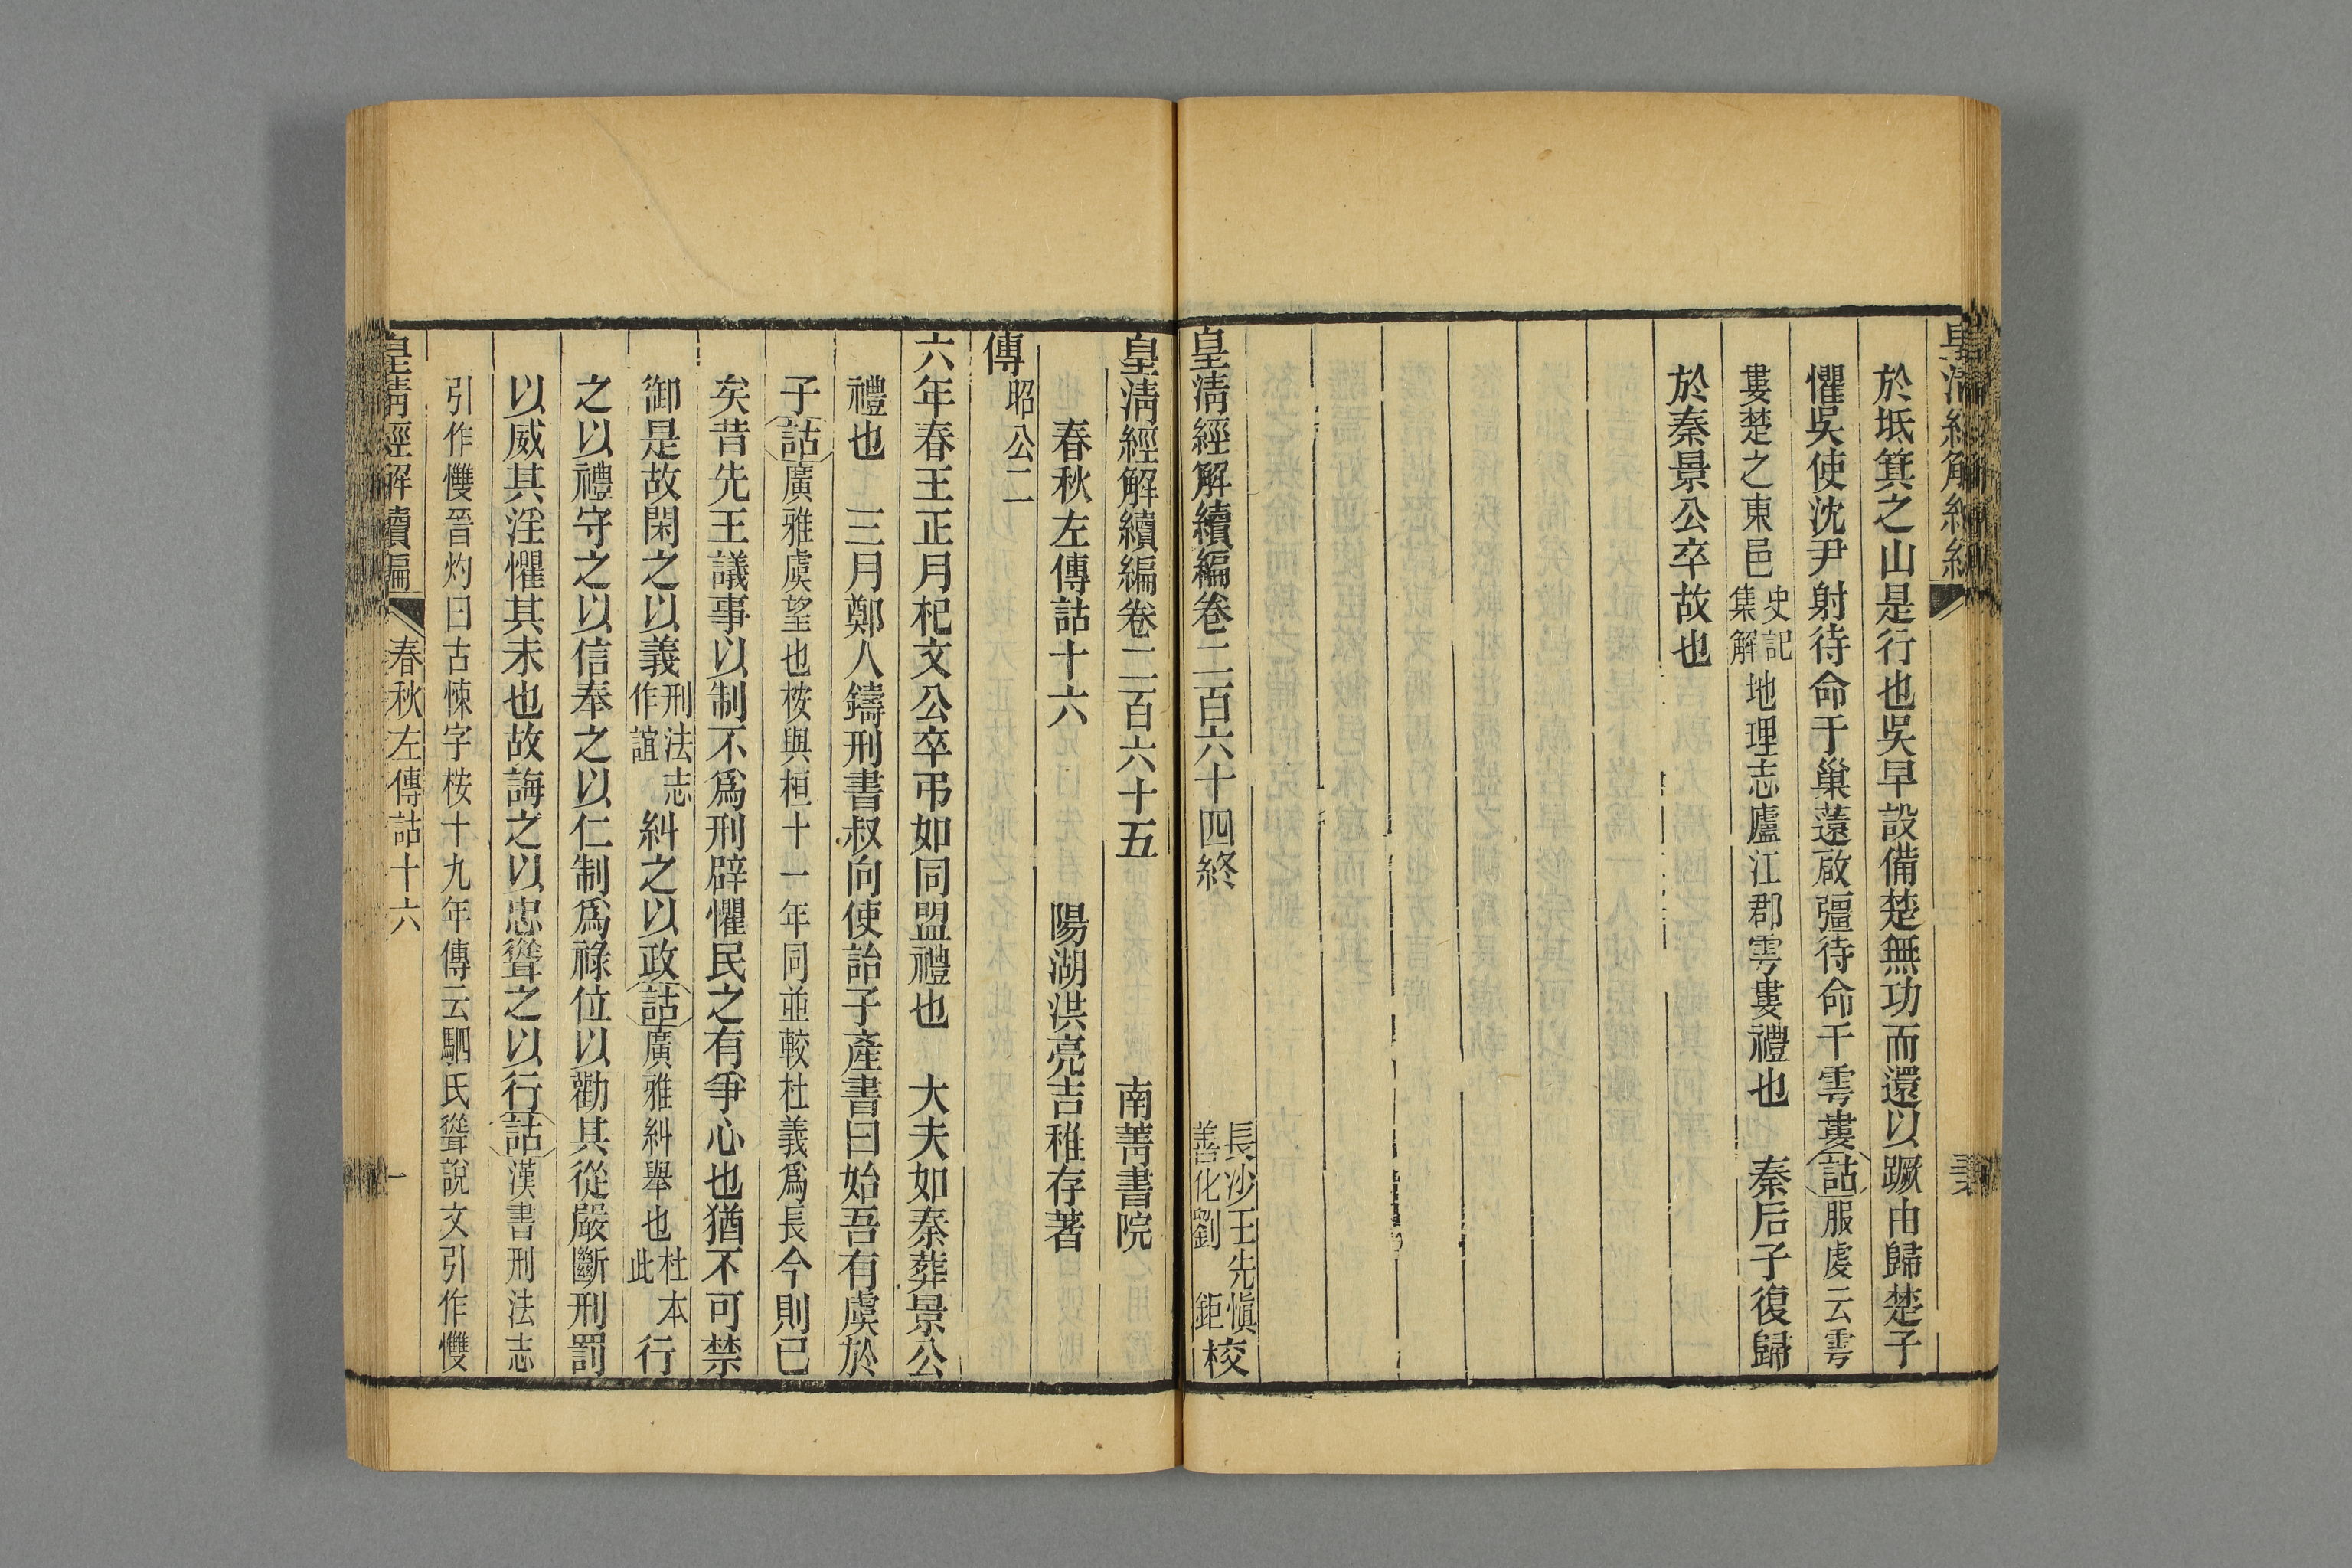 於坻箕之山是行也吳早設備楚無功而還以蹶由歸楚子
懼吳使沈尹射待命于巢薳啟彊待命于雩婁詁服虔云雩
婁楚之東邑史記集解地理志廬江郡雩婁禮也　秦后子復歸
於秦景公卒故也
皇淸經解續編卷二百六十四終　長沙王先愼善化劉　鉅校
皇淸經解續編卷二百六十五　南菁書院
春秋左傳詁十六　陽湖洪亮吉稚存著
傳昭公二
六年春王正月杞文公卒弔如同盟禮也　大夫如秦葬景公
禮也　三月鄭人鑄刑書叔向使詒子產書曰始吾有虞於
子詁廣雅虞望也桉與桓十一年同並較杜義爲長今則已
矣昔先王議事以制不爲刑辟懼民之有爭心也猶不可禁
御是故閑之以義刑法志作誼糾之以政詁廣雅糾舉也杜本此行
之以禮守之以信奉之以仁制爲祿位以勸其從嚴斷刑罰
以威其淫懼其未也故誨之以忠聳之以行詁漢書刑法志
引作㩳晉灼曰古悚字桉十九年傳云駟氏聳說文引作㩳
皇淸經解續編　春秋左傳詁十六　一